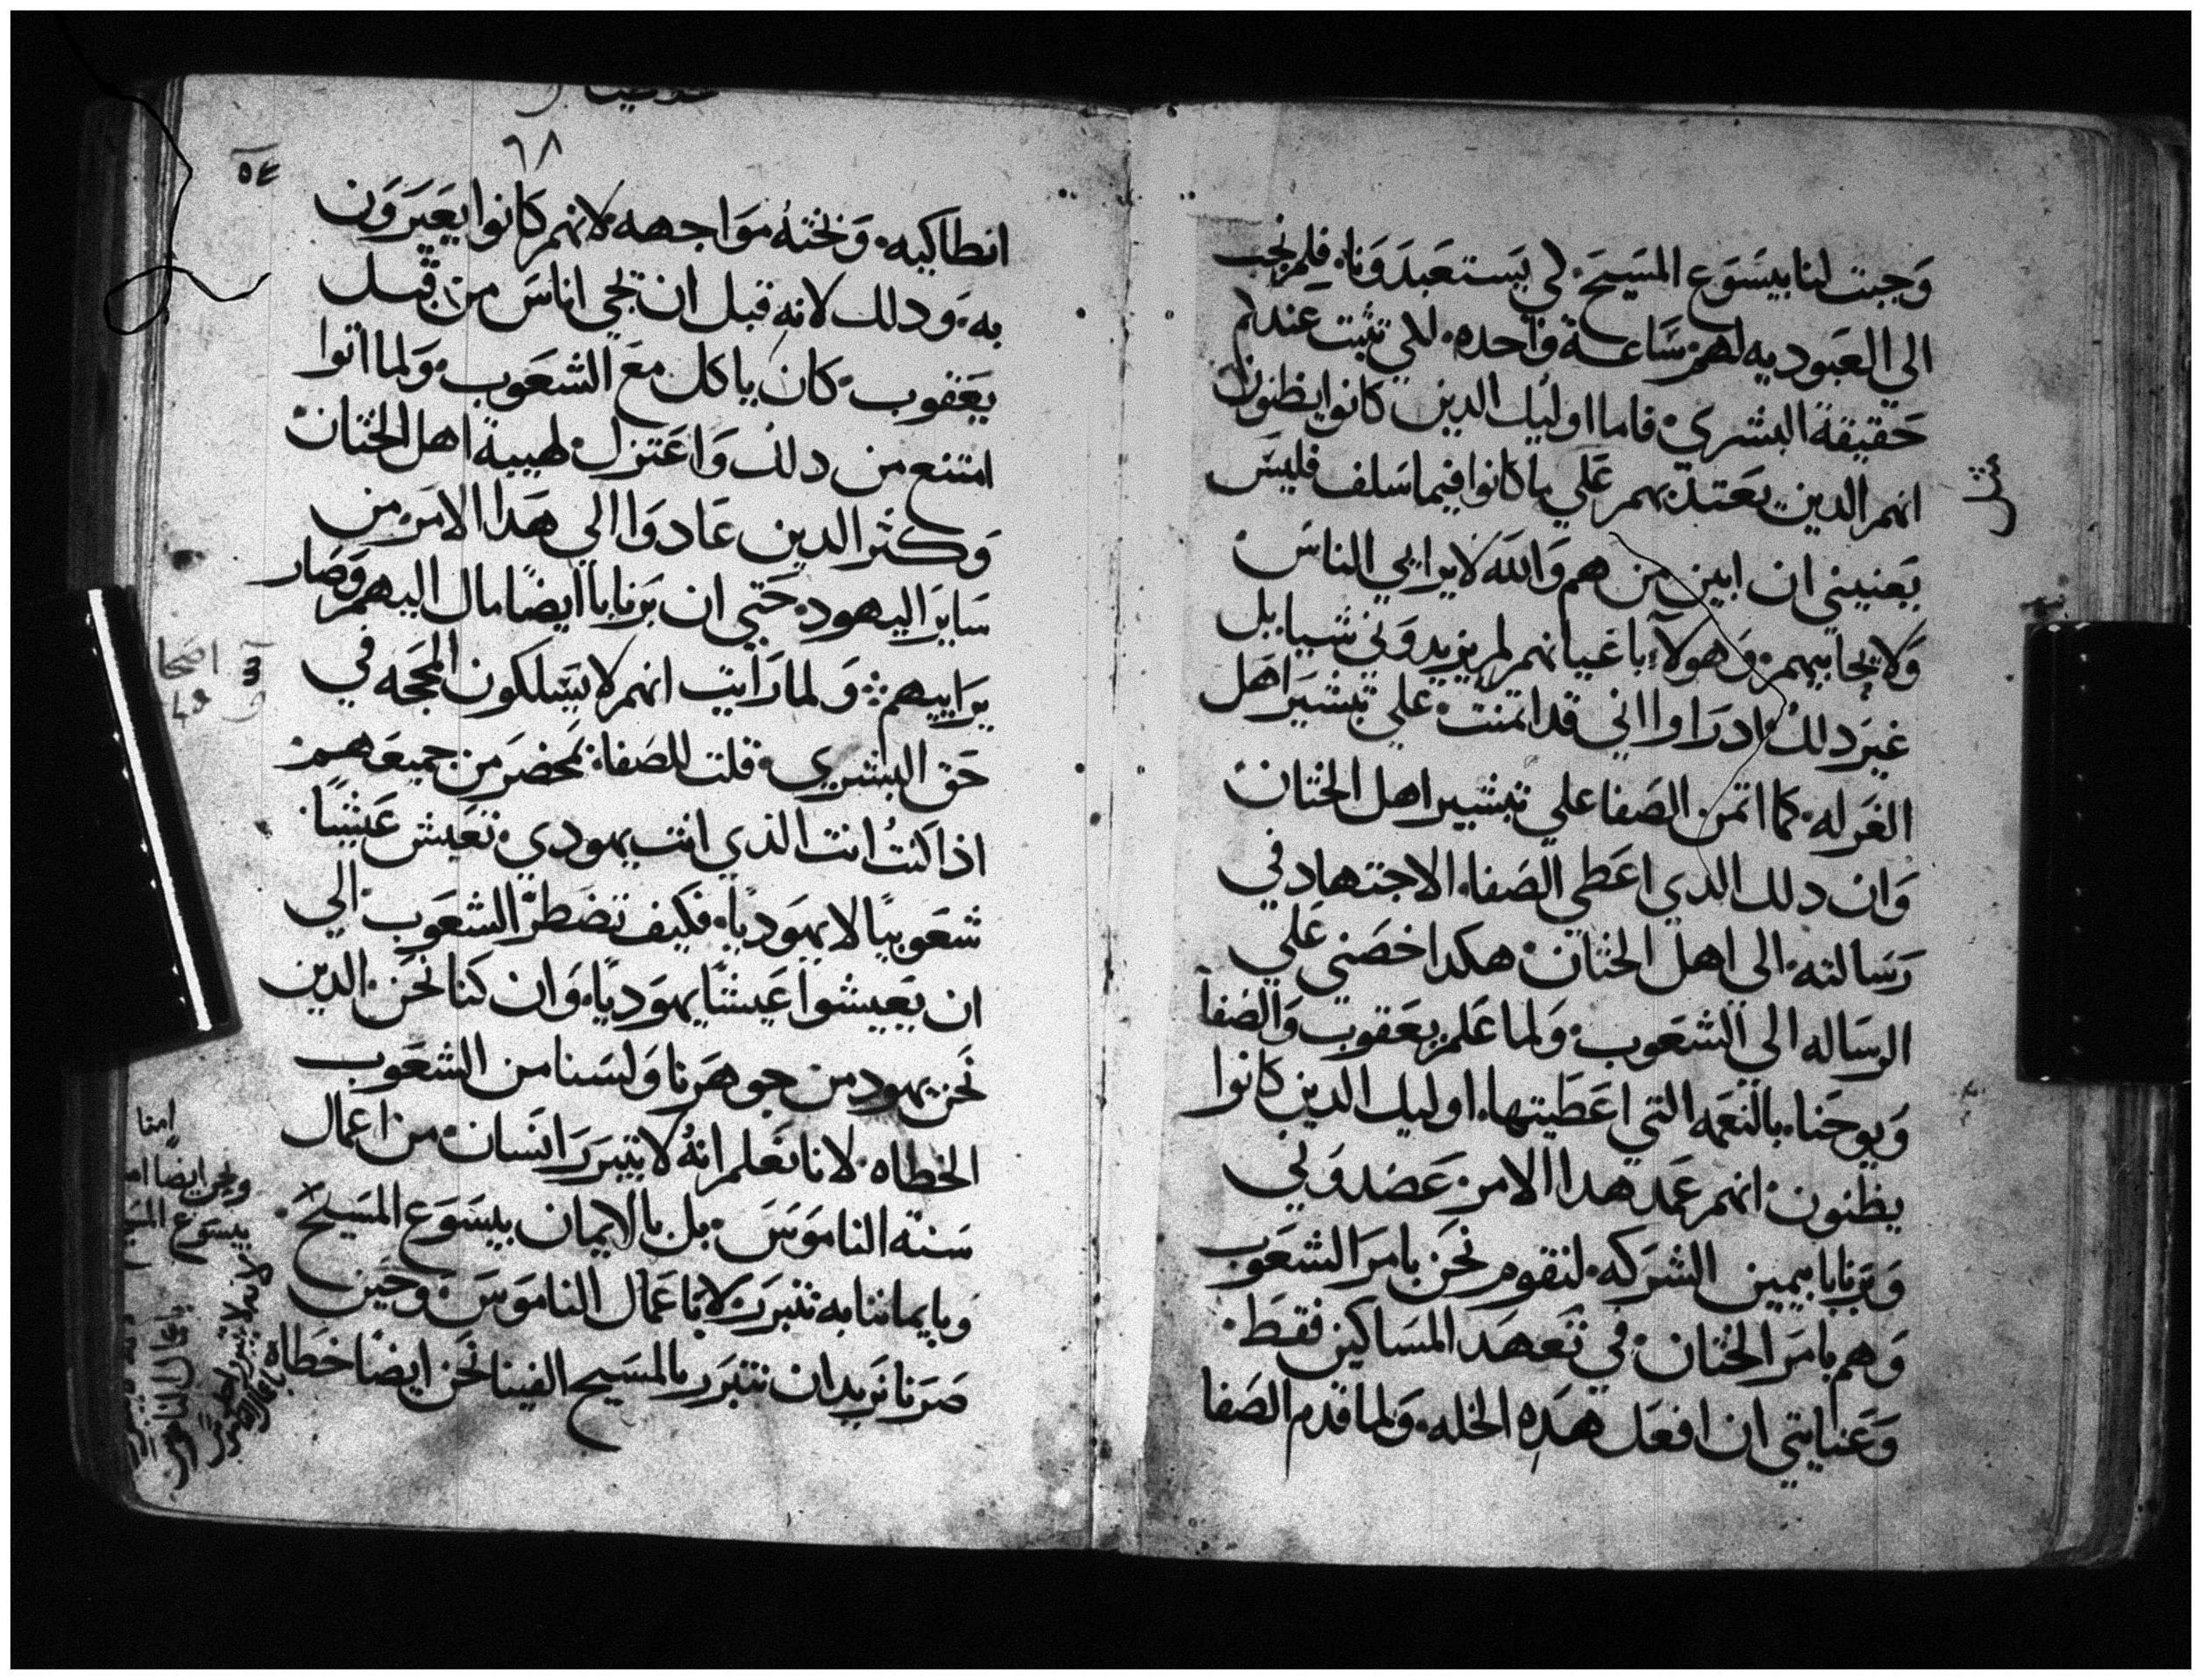 وَجبت لنا بيسَوَع المسَيحَ۰ لي يَستعَبدَوَنا۰ فلم نجب
الي العَبوديه لهم سَاعةً وَاحده۰ للي تثبت عندكم
حَقيقة البشري۰ فاما اوليك الدين كانوا يظنون
انهم الدين يعَتدّ بهم عَلي ما كانوا فيما سَلف فليسَ
يَعنيني ان ابين من هم وَالله لا يرايي الناسَ۰
وَلا يحابيهم۰ وَهولآء باعَيانهم لم يزيدوَني شيا۰ بل
غيرَ دلك ادراوا اني قد اتمنت۰ علي تبشيرَ اهل
الغَرله۰ كما اتمن الصَفا علي تبشير اهل الختان
وَان دلك الدي اعَطي الصَفا۰ الاجتهاد في
رَسَالته۰ الي اهل الختان۰ هكدا خصَني عَلي
الرسَاله الي الشعَوب۰ وَلما عَلم يعَقوب وَالصَفا
وَيوحَنا۰ بالنعَمه التي اعَطيتها۰ اوليك الدين كانوا
يظنون۰ انهم عَمد هدا الامر۰ عَضدوَني
وَبرَنابا بيمين الشرَكه۰ لنقوم نحَن بامرَ الشعَوب
وَهم بامرَ الختان۰ في تعَهدَ المسَاكين فقط۰
وَعَنايتي ان افعَل هدَه الخله۰ وَلما قدم الصَفا
٦٨
انطاكيه۰ وَبختهُ موَاجهه لانهم كانوا يعَيرَوَن
به۰ وَدلك لانه قبل ان تجي اناسَ من قبل
يَعَقوب۰ كان ياكل معَ الشعَوب۰ وَلما اتوا
امتنع من دلك وَاعَتزل۰ لهيبة اهل الختان
وَكثر الدين عَادوَا الي هَدا الامرَ۰ من
سَايرَ اليهود۰ حَتي ان بَرنابا ايضًا مال اليهم وَصَار
يرَاييهم۰ وَلما رَايت انهم لا يسَلكون المحجه في
حَق البشري۰ قلت للصَفا۰ بمحضرَ من جميعَهم۰
اذا كنتُ انت الذي انت يهودي۰ تعَيش عَيشًا۰
شعَوبيًا لا يهوَديًا۰ فكيف تضطرّ الشعَوب الي
ان يعَيشوا عَيشًا يهوَديًا۰ وَان كنا نحَن۰ الدين
نَحن يهود من جوهرَنا وَلسَنا من الشعَوب
الخطاه۰ لانا نعَلم انهُ لا يتبرَرَ انسَان۰ من اعمال
سَنة الناموَسَ۰ بل بالايمان بيسَوَع المسَيحَ۰
وَبايماننا به نتبرَر۰ لا باعَمال الناموَسَ۰ وَحَين
صَرَنا نرَيد ان نتبرَر بالمسَيح الفينا نحَن ايضًا خطاه
امنا
وَنحن ايضا
بيسَوَع